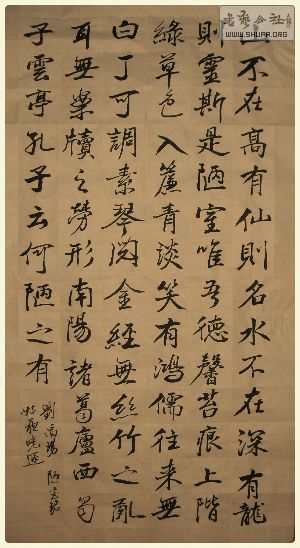 書藝公社
WWW.SHUFA.ORG
山不在高有仙則名水不在深有龍
則靈斯是陋室唯吾德馨苔痕上階
綠草色入簾青談笑有鴻儒往来無
白丁可調素琴閱金經無丝竹之亂
耳無案牘之勞形南陽諸葛廬西蜀
子雲亭孔子云何陋之有
劉禹錫陋室銘